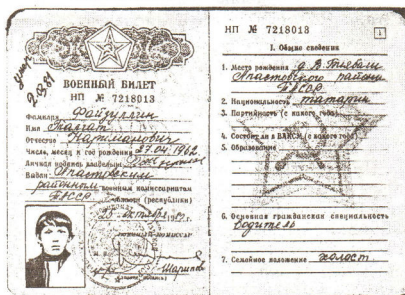 умер
2.12.81
ВОЕННЫЙ БИЛЕТ
НП № 7218013
Фамилия Файзуллин
Имя Талгат
Отчество Нурманович
Число, месяц и год рождения 27.04.1962
Личная подпись владельца
Выдан Апастовским
районным военным комиссариатом
ТАССР области (республики)
25 октября 198
ВОЕННЫЙ КОМИССАР
Шарипов
НП № 7218013
1
I. Общие сведения
1. Место рождения д. В.
Апастовского района
ТАССР
2. Национальность татарин
3. Партийность (с какого года)
4. Состоит ли в ВЛКСМ (с какого года)
5. Образование
6. Основная гражданская специальность
водитель
7. Семейное положение холост